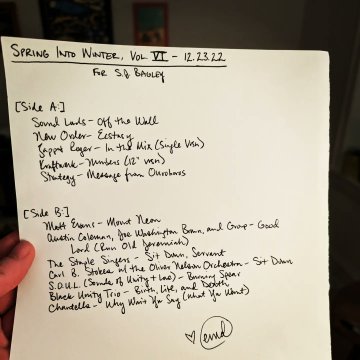 SPRING INTO WINTER, VOL VI - 12.23.22
FOR S.J. BAGLEY
[Side A:]
Sound Lords - Off the Wall
New Order - Ecstasy
Zapp & Roger - In the Mix (Single Vrsn)
Kraftwerk - Numbers (12" vrsn)
Strategy - Message from Ouroboros
[Side B:]
Matt Evans - Mount Neon
Austin Coleman, Joe Washington Brown, and Group - Good
Lord (Run Old Jeremiah)
The Staple Singers - Sit Down, Servant
Carl B. Stokes w/ the Oliver Nelson Orchestra - Sit Down
S.O.U.L. (Sounds of Unity + Love) - Burning Spear
Black Unity Trio - Birth, Life, and Death
Chantells - Why Wait You Say (What You Want)
♡